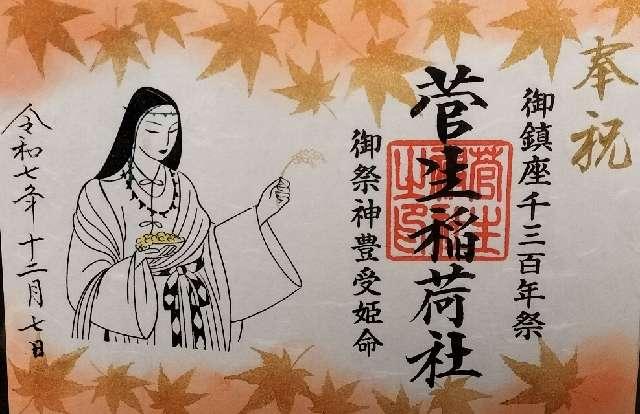 奉祝
御鎮座千三百年祭
菅生稲荷社
御祭神豊受姫命
令和七年十二月七日